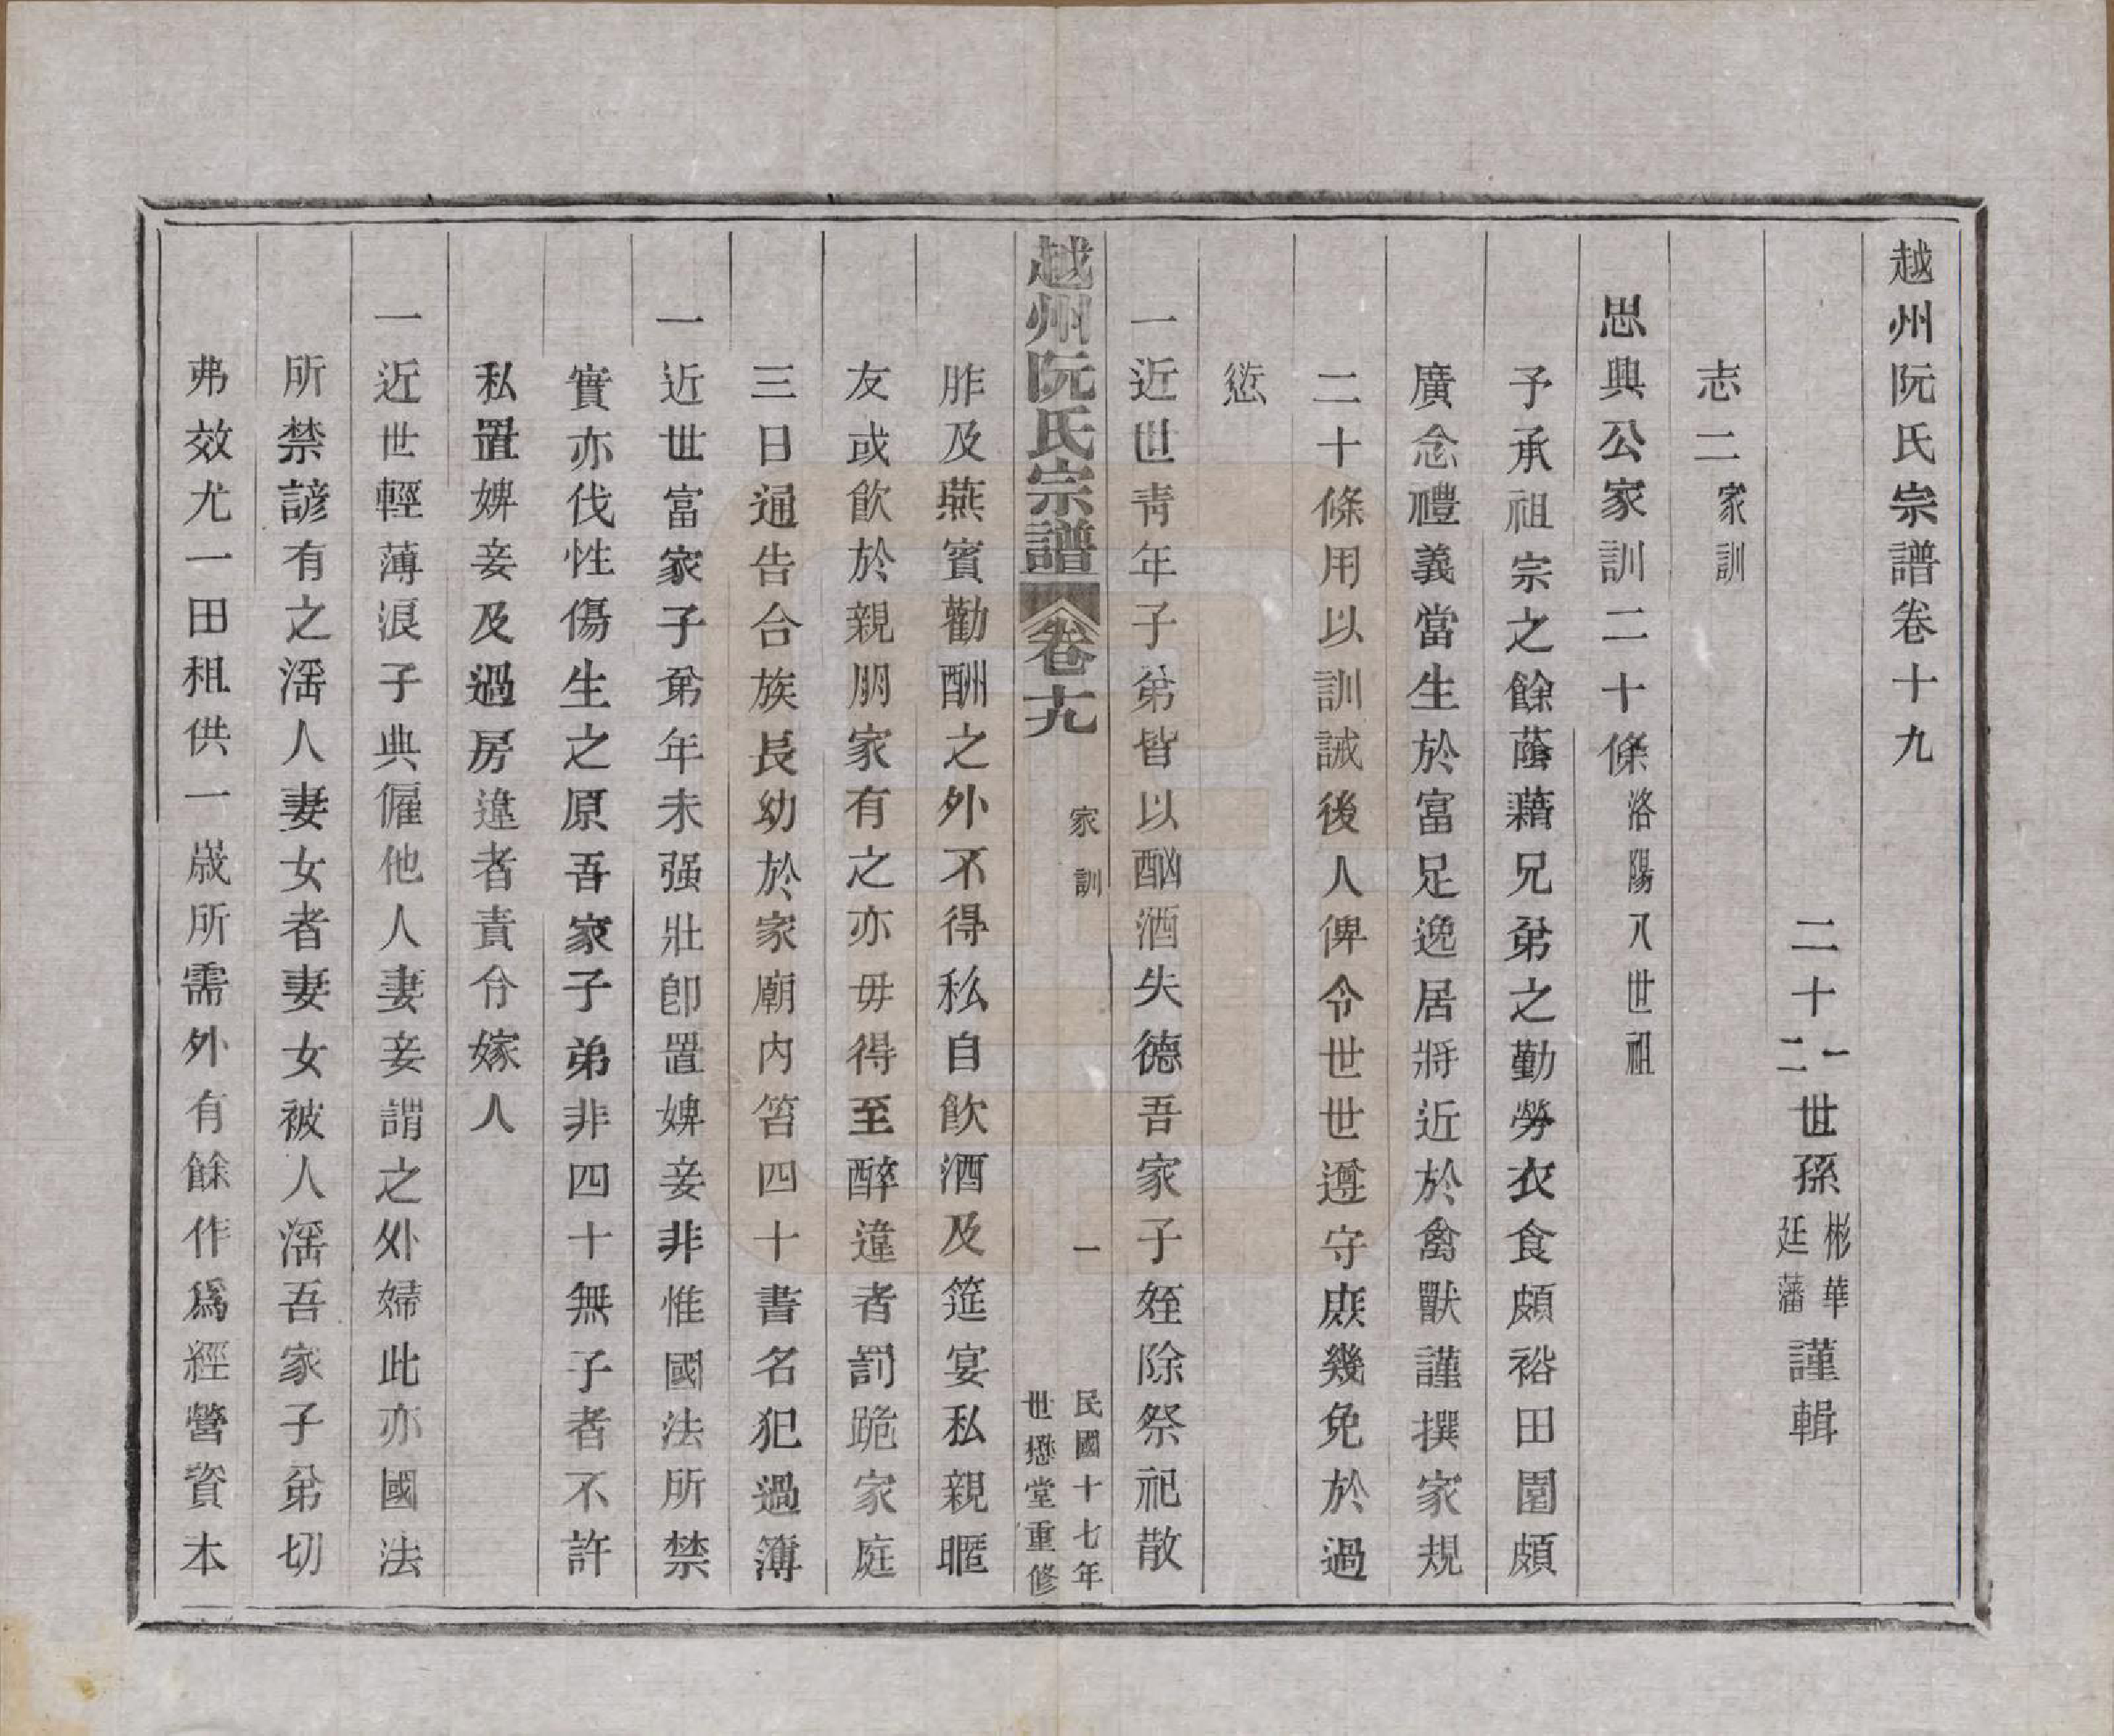 越州阮氏宗譜卷十九
二十一二世孫彬華廷藩謹輯
志二家訓
思興公家訓二十條洛陽八世祖
予承祖宗之餘蔭藉兄弟之勤勞衣食頗裕田園頗
廣念禮義當生於富足逸居將近於禽獸謹撰家規
二十條用以訓誡後人俾令世世遵守庶幾免於過
愆
一近世靑年子弟皆以酗酒失德吾家子姪除祭祀散
越州阮氏宗譜 卷十九 家訓 一 民國十七年 世懋堂重修
胙及燕賓勸酬之外不得私自飲酒及筵宴私親暱
友或飲於親朋家有之亦毋得至醉違者罰跪家庭
三日通告合族長幼於家廟內笞四十書名犯過簿
一近世富家子弟年未强壯卽置婢妾非惟國法所禁
實亦伐性傷生之原吾家子弟非四十無子者不許
私置婢妾及過房違者責令嫁人
一近世輕薄浪子典僱他人妻妾謂之外婦此亦國法
所禁諺有之淫人妻女者妻女被人淫吾家子弟切
弗效尤一田租供一歲所需外有餘作爲經營資本